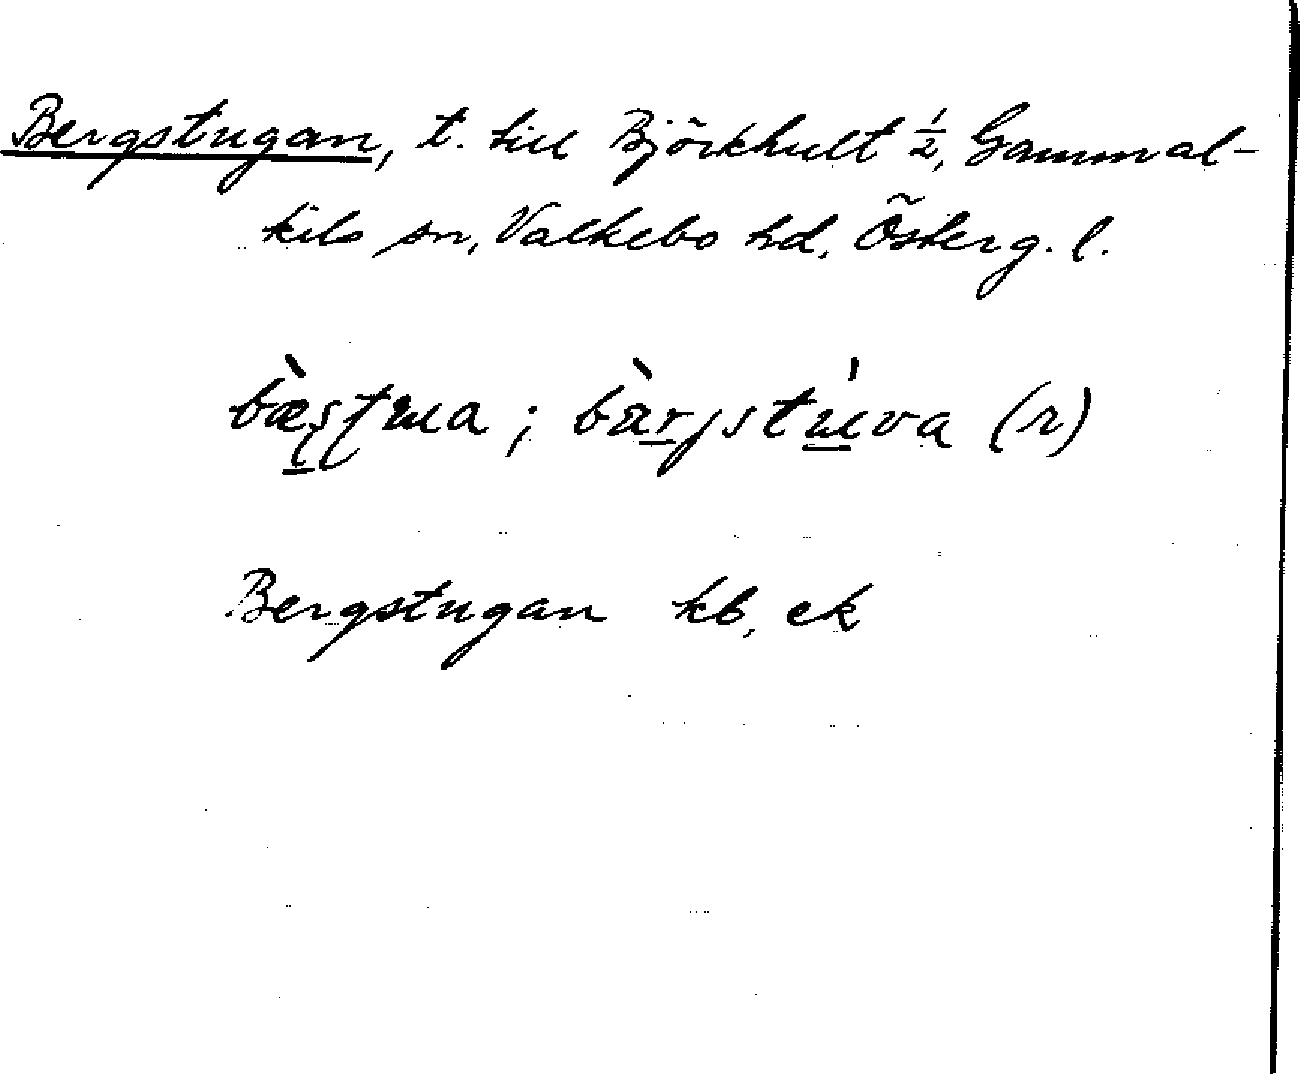 Bergstugan, t. till Björkhult ½, Gammal-
kils sn, Valkebo hd, Österg. l.
bæ̀ʂʈɯa ; bàrjstɯ́va (r)
Bergstugan kb, ek